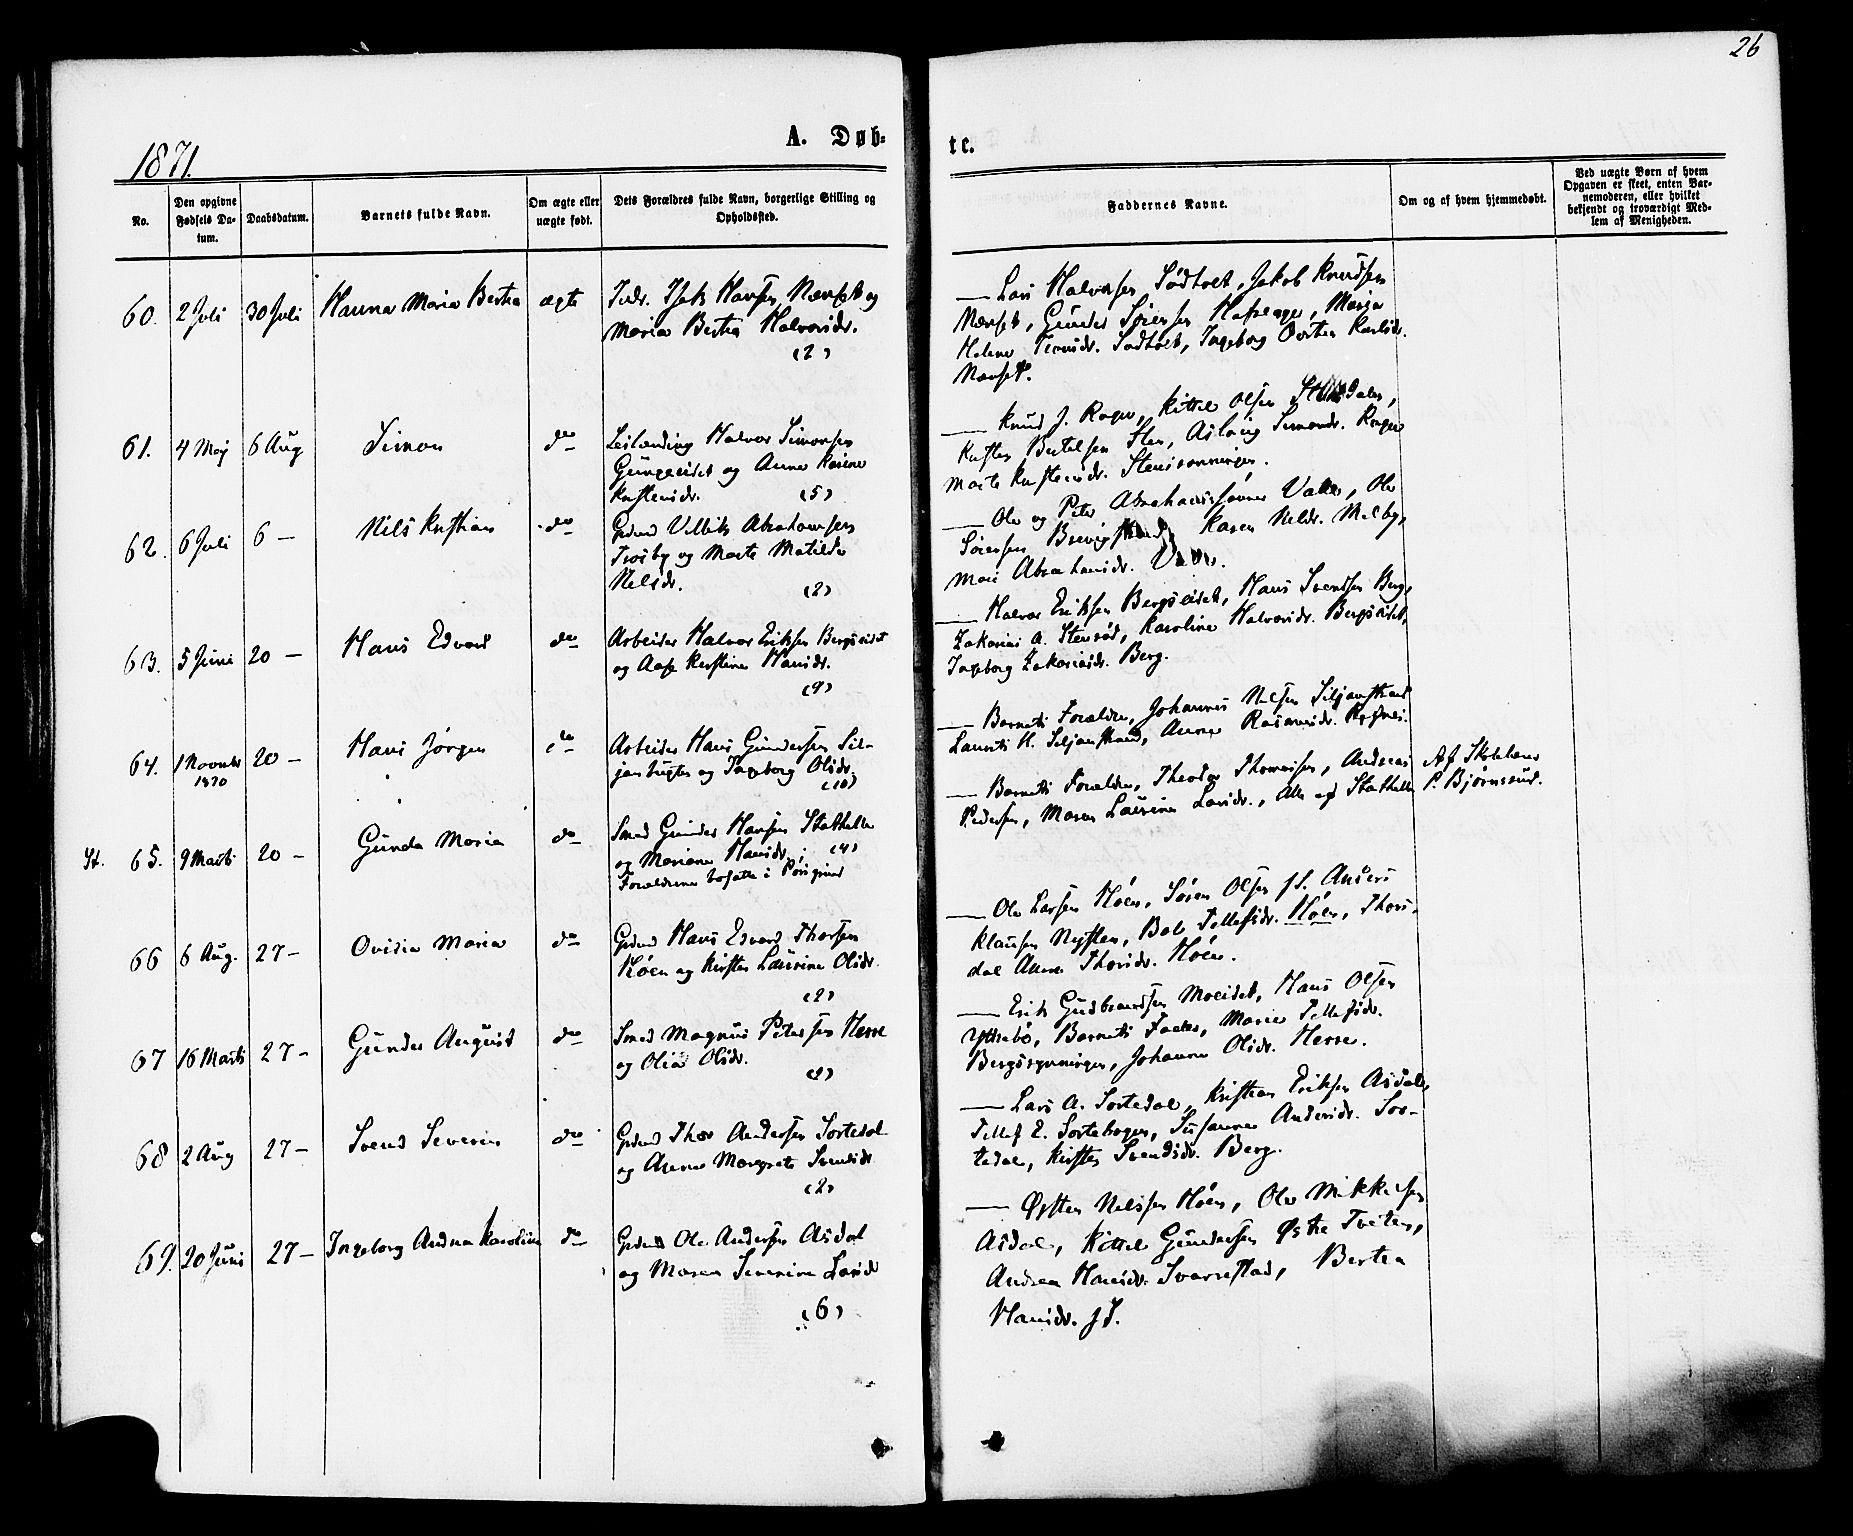 26
1871.
A. Døb-
te.
No.
Den opgivne Fødsels Da-tum.
Daabsdatum.
Barnets fulde Navn.
Om ægte eller uægte født.
Dets Forældres fulde Navn, borgerlige Stilling og Opholdssted.
Faddernes Navne.
Om og af hvem hjemmedøbt.
Ved uægte Børn af hvem Opgaven er skeet, enten Bar-nemoderen, eller hvilket bekjendt og troværdigt Med-lem af Menigheden.
60. 2 Juli 30 Juli Hanna Maria Bertea ægte
Inds. Isak Hansen Nævset og
Maria Bertea Halvorsdr.
(2)
— Lars Halvorsen Sødtvet, Jakob Knudsen
Nævset, Gunder Sørensen Hafsager, Maria
Helene Jensdr. Sødtvet, Ingeborg Dortea Karlsdr.
Nævset.
61. 4 Maj 6 Aug Simon do
Leilænding Halvor Simonsen
Gungeeidet og Anne Karine
Kristensdr. (5)
— Knud J. Rogn, Kittel Olsen
Kristen Bertelsen Sten, Aslaug Simonsdr. Rogn
Marte Kristensdr.
62. 6 Juli 6 — Nils Kristian do
Grdmd Abrahamsen
Trosby og Marte Matilde
Nelsdr. (2)
— Ole og Peter Abrahamssønner Valle, Ole
Sørensen Karen Nelsdr. Melby,
Mari Abrahamsdr. Valle.
63. 5 Juni 20 — Hans Edvard do
Arbeider Halvor Eriksen Bergseidet
og Aase Kirstine Hansdr.
(9)
— Halvor Eriksen Bergseidet, Hans Svendsen Berg,
Zakarias A. Stensrød, Karoline Halvorsdr. Bergseidet,
Ingeborg Zakariasdr. Berg.
64. 1 Novembr 1870 20 — Hans Jørgen do
Arbeider Hans Gundersen Sil-
jan og Ingeborg Olsdr.
(10)
— Barnets Forældre, Johannes Nilsen Siljanstrand
Laurits H. Siljanstrand, Anne
St. 65. 9 Marts 20 — Gunda Maria do
Smed Gunder Hansen Stathelle
og Mariane Hansdr.; (4)
Forældrene bosatte i Porsgrund
— Barnets Forældre, Theodor Thomesen, Andreas
Pedersen, Maren Laurine Larsdr., Alle af Stathelle
Af Skolelærer
P. Bjørnsund.
66 6 Aug. 27 — Ovidia Maria do
Grdmd Hans Edvard Thorsen
Høen og Kirsten Laurine Olsdr.
(2)
— Ole Larsen Høen, Søren Olsen js. Anders
Klausen Nysten, Bol Tellefsdr. Høen, Thors-
dal Anne Thorsdr. Høen.
67 16 Marts 27 — Gunder August do
Smed Magnus Petersen Herre
og Olea Olsdr.
— Erik Gudbrandsen Moeidet, Hans Olsen
Yttrebø, Barnets Fader, Marie Tellefsdr.
Johanne Olsdr. Herre.
68 2 Aug 27 — Svend Severin do
Grdmd Thor Andersen Sortedal
og Anne Margrete Svendsdr.
(2)
— Lars A. Sortedal, Kristian Eriksen Asdal,
Tellef E. Sortebogen, Susanne Andersdr. Sor-
tedal, Kirsten Svendsdr. Berg.
69. 20 Juni 27 — Ingeborg Andrea Karoline do
Grdmd Ole Andersen Asdal
og Maren Severine Larsdr
(6)
— Øysten Nelssen Høen, Ole Mikkelsen
Asdal, Kittel Gundersen Østre Tveten,
Andrea Hansdr. Svarrestad, Bertea
Hansdr. js.